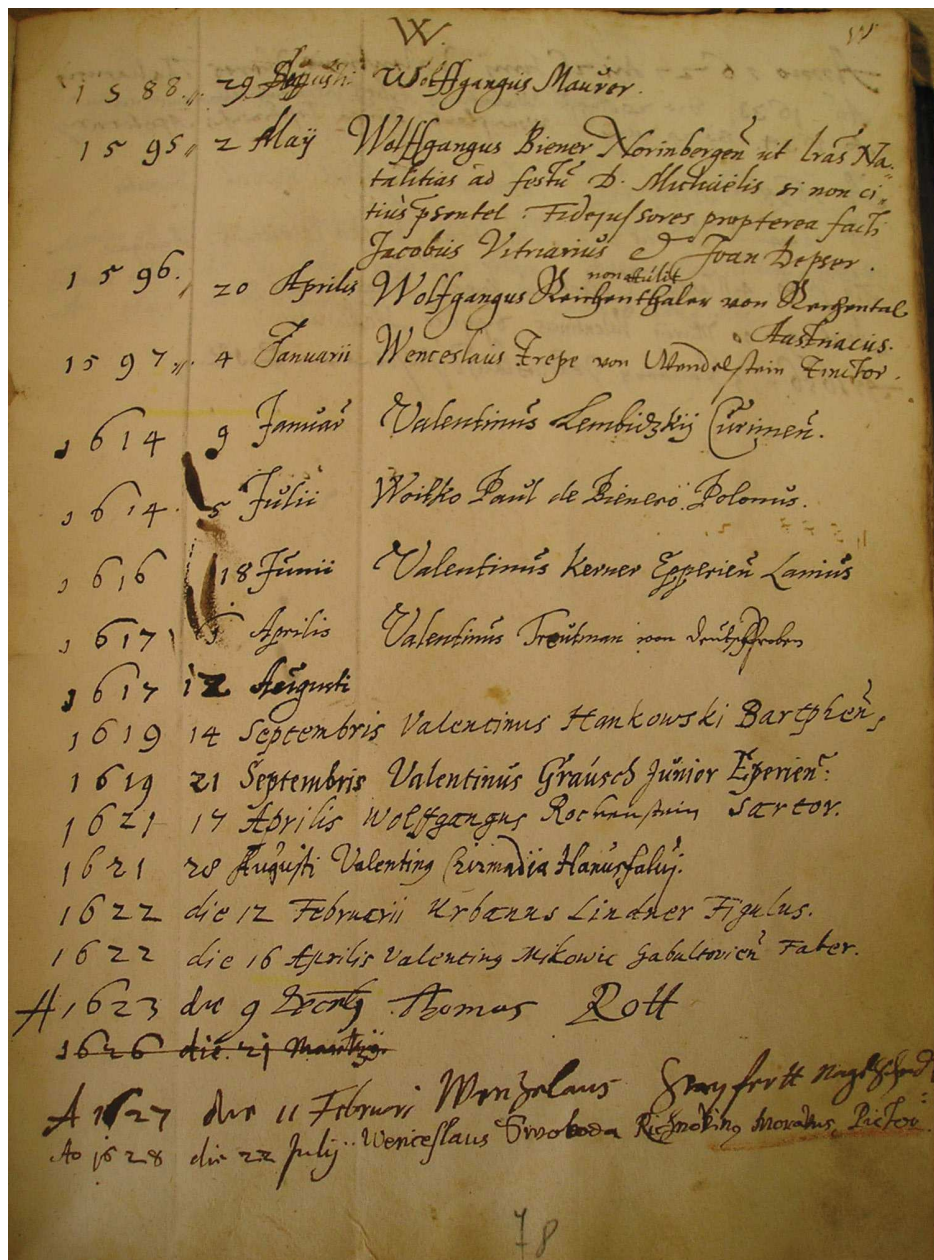 W.
1588. 29 Augusti Wolffgangus Maurer.
1595 2 Maÿ Wolffgangus Biener Norinbergeñ ut lrãs Na-
talitias ad festũ D. Michaelis si non ci-
tius psentet. Fidejussores propterea facti
Jacobus Vitriarius & Joan Depser.
non attulit
1596. 20 Aprilis Wolfgangus Reichenthaler von Reichental
Austriacus.
1597 4 Januarii Wenceslaus Trepe von Wendelstein Tinctor.
1614 9 Januar Valentinus Lembidzkij Curimeñ.
1614 5 Julii Woitko Paul de Bienero Polonus.
1616 18 Junii Valentinus Kerner Epperieñ Lanius
1617 Aprilis Valentinus Troutman von
1617 12 Augusti
1619 14 Septembris Valentinus Hankowski Bartpheñ,
1619 21 Septembris Valentinus Grausch Junior Eperien:
1621 17 Aprilis Wolffgangus Rochenstein Sartor.
1621 28 Augusti Valentinus Cizmadia Hanusfaluÿ.
1622 die 12 Februarii Urbanus Lindner Figulus.
1622 die 16 Aprilis Valentinus Mikowic Gabultovieñ Faber.
A 1623 die 9 Thomas Rott
1626 die 21 Martÿ
A 1627 die 11 Februari Wenzelaus
Ao 1628 die 22 Julÿ Wenceslaus Swoboda Moravus, Pictor
78